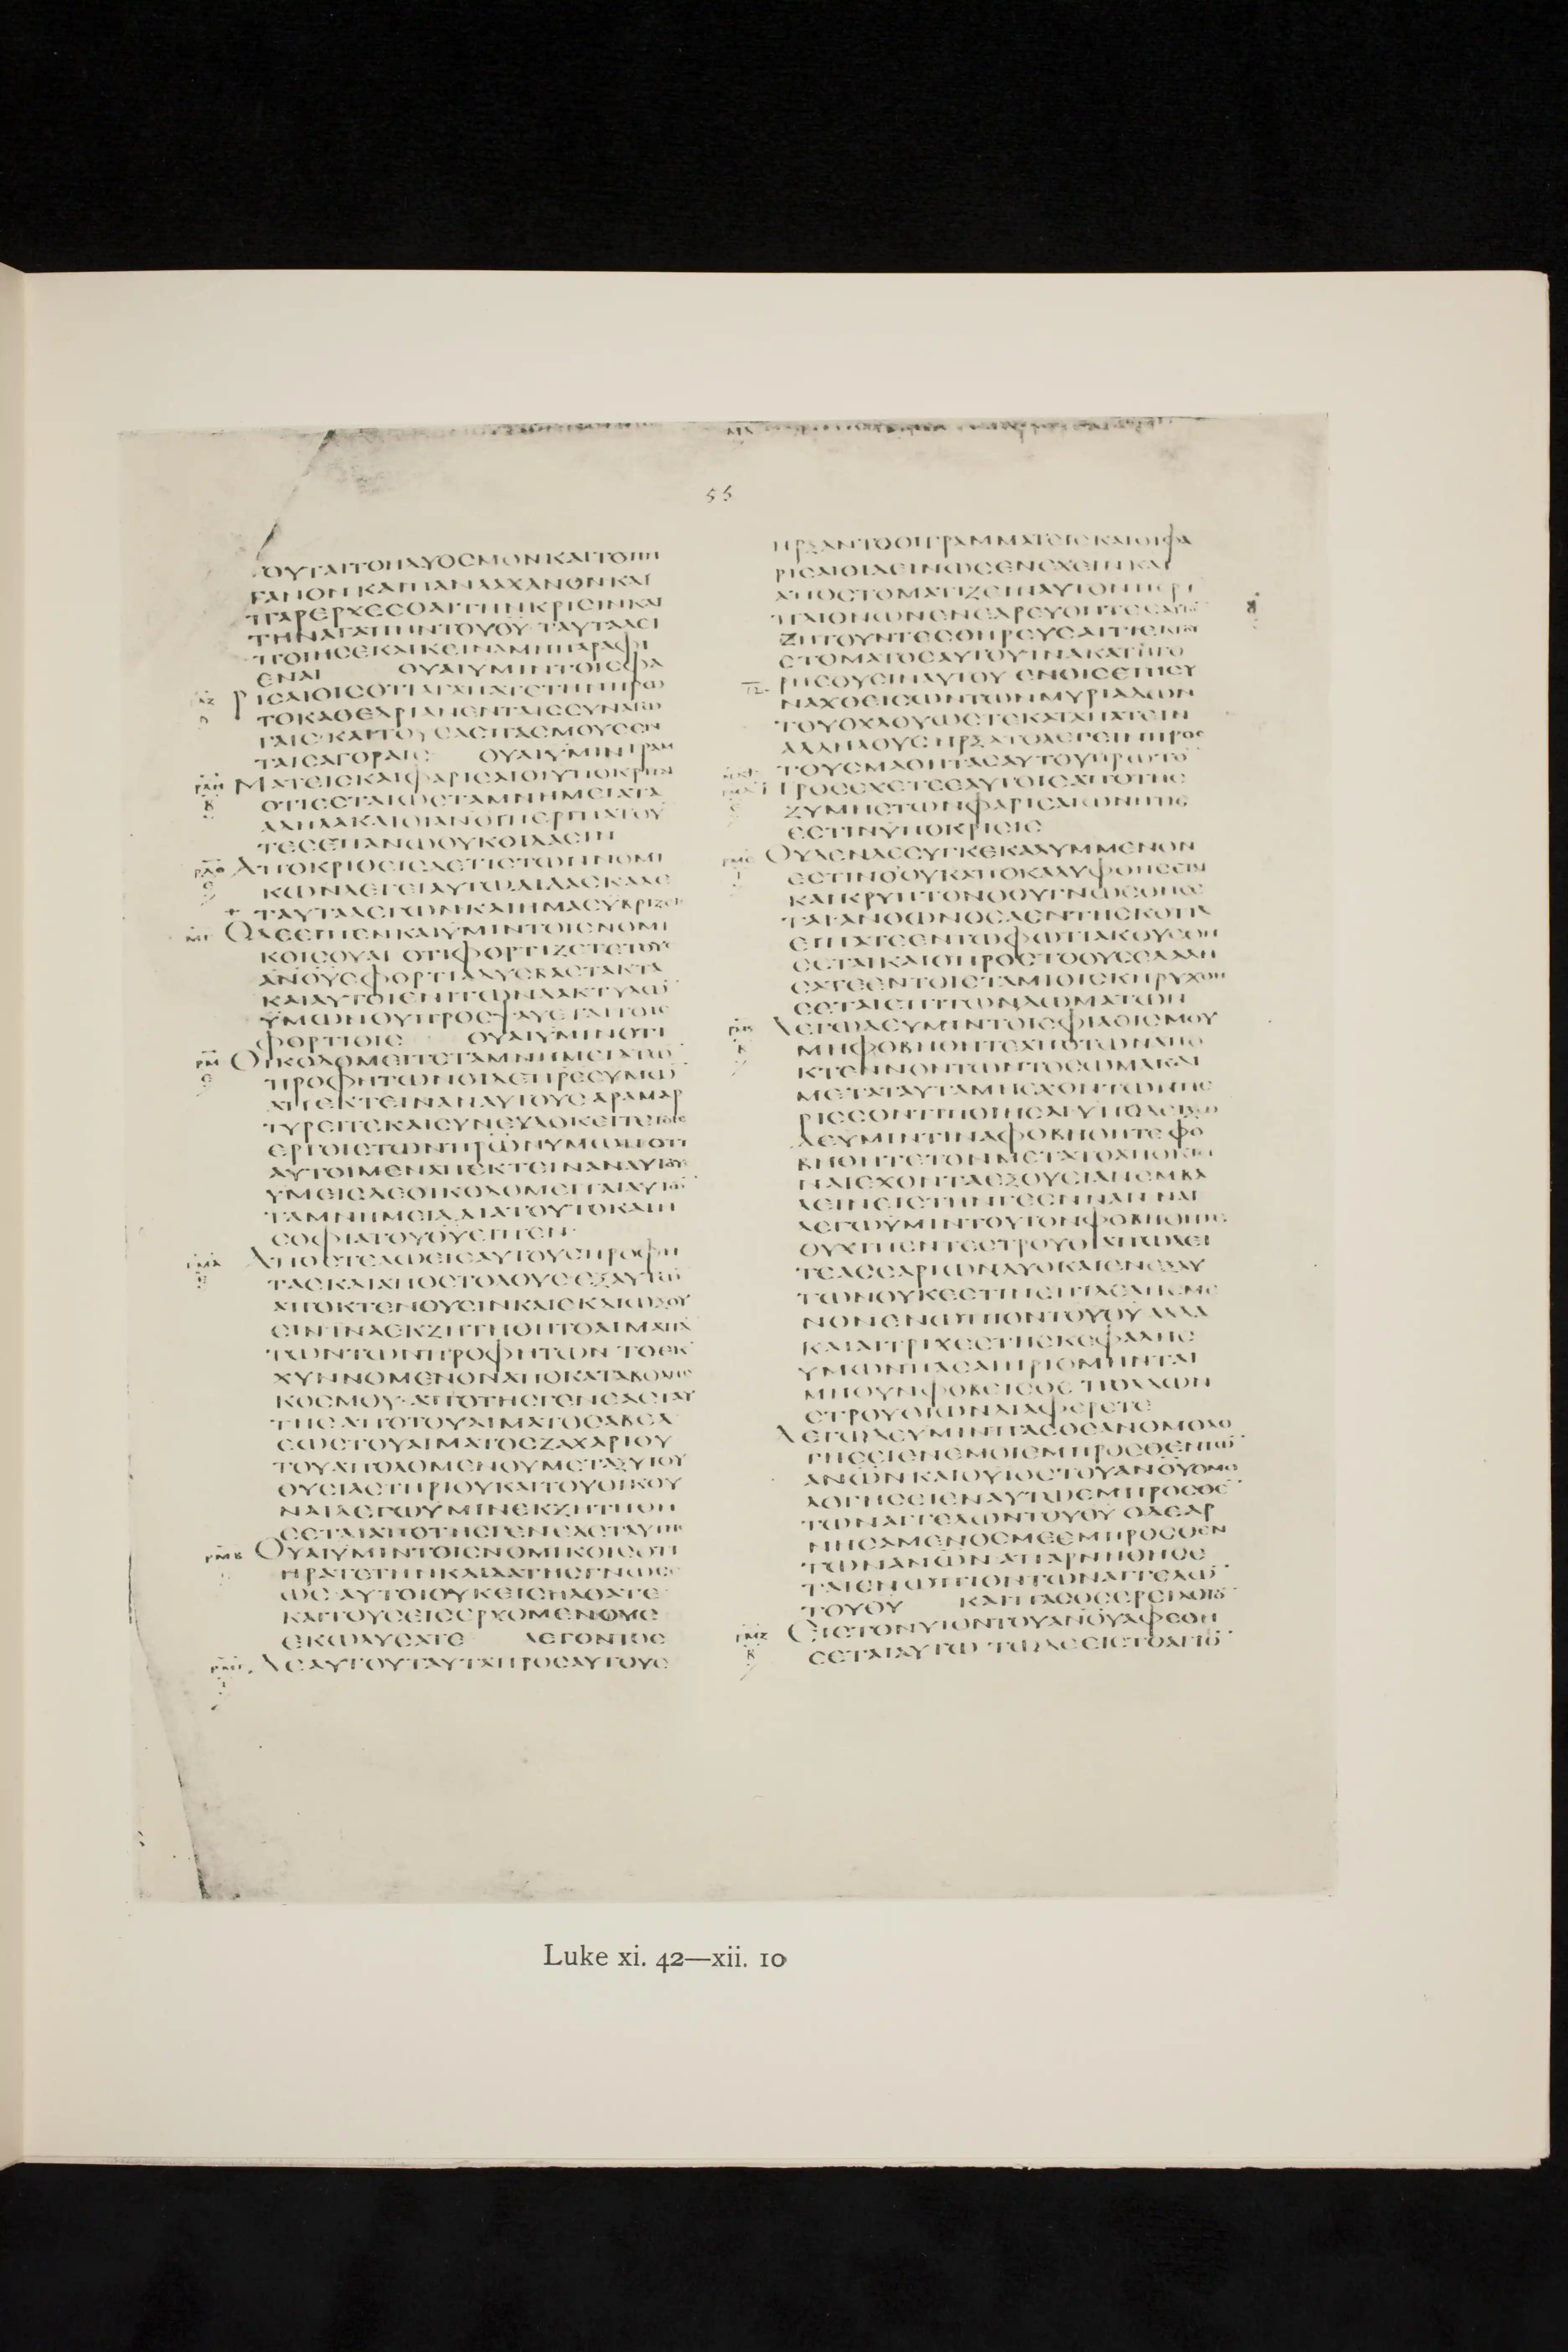 55
ΟΥΤΑΙΤΟΗΔΥΟϹΜΟΝΚΑΙΤΟΠΗ
ΓΑΝΟΝΚΑΙΠΑΝΛΑΧΑΝΟΝΚΑΙ
ΠΑΡΕΡΧΕϹΘΑΙΤΗΝΚΡΙϹΙΝΚΑΙ
ΤΗΝΑΓΑΠΗΝΤΟΥΘΥ ΤΑΥΤΑΔΕΙ
ΠΟΙΗϹΕΚΑΙΚΕΙΝΑΜΗΠΑΡΑΦΙ
ΕΝΑΙ ΟΥΑΙΥΜΙΝΤΟΙϹΦΑ
ΡΙϹΑΙΟΙϹΟΤΙΑΓΑΠΑΤΕΤΗΝΠΡΩ
ΤΟΚΑΘΕΔΡΙΑΝΕΝΤΑΙϹϹΥΝΑΓΩ
ΓΑΙϹ ΚΑΙΤΟΥϹΑϹΠΑϹΜΟΥϹΕΝ
ΤΑΙϹΑΓΟΡΑΙϹ ΟΥΑΙΥΜΙΝΓΡΑΜ
ΜΑΤΕΙϹΚΑΙΦΑΡΙϹΑΙΟΙΥΠΟΚΡΙΤΑΙ
ΟΤΙΕϹΤΑΙΩϹΤΑΜΝΗΜΕΙΑΤΑ
ΑΔΗΛΑΚΑΙΟΙΑΝΟΙΠΕΡΙΠΑΤΟΥ
ΤΕϹΕΠΑΝΩΟΥΚΟΙΔΑϹΙΝ
ΑΠΟΚΡΙΘΕΙϹΔΕΤΙϹΤΩΝΝΟΜΙ
ΚΩΝΛΕΓΕΙΑΥΤΩΔΙΔΑϹΚΑΛΕ
ΤΑΥΤΑΛΕΓΩΝΚΑΙΗΜΑϹΥΒΡΙΖΕΙϹ
ΟΔΕΕΙΠΕΝΚΑΙΥΜΙΝΤΟΙϹΝΟΜΙ
ΚΟΙϹΟΥΑΙ ΟΤΙΦΟΡΤΙΖΕΤΕΤΟΥϹ
ΑΝΟΥϹΦΟΡΤΙΑΔΥϹΒΑϹΤΑΚΤΑ
ΚΑΙΑΥΤΟΙΕΝΙΤΩΝΔΑΚΤΥΛΩ
ΥΜΩΝΟΥΠΡΟϹΨΑΥΕΤΑΙΤΟΙϹ
ΦΟΡΤΙΟΙϹ ΟΥΑΙΥΜΙΝΟΤΙ
ΟΙΚΟΔΟΜΕΙΤΕΤΑΜΝΗΜΕΙΑΤΩ
ΠΡΟΦΗΤΩΝΟΙΔΕΠΡΕϹΥΜΩ
ΑΠΕΚΤΕΙΝΑΝΑΥΤΟΥϹΑΡΑΜΑΡ
ΤΥΡΕΙΤΕΚΑΙϹΥΝΕΥΔΟΚΕΙΤΕΤΟΙϹ
ΕΡΓΟΙϹΤΩΝΠΡΩΝΥΜΩΝΟΤΙ
ΑΥΤΟΙΜΕΝΑΠΕΚΤΕΙΝΑΝΑΥΤΟΥϹ
ΥΜΕΙϹΔΕΟΙΚΟΔΟΜΕΙΤΑΙΑΥΤΩ
ΤΑΜΝΗΜΕΙΑ ΔΙΑΤΟΥΤΟΚΑΙΗ
ϹΟΦΙΑΤΟΥΘΥΕΙΠΕΝ
ΑΠΟϹΤΕΛΩΕΙϹΑΥΤΟΥϹΠΡΟΦΗ
ΤΑϹΚΑΙΑΠΟϹΤΟΛΟΥϹΕΞΑΥΤΩ
ΑΠΟΚΤΕΝΟΥϹΙΝΚΑΙΕΚΔΙΩΞΟΥ
ϹΙΝΙΝΑΕΚΖΗΤΗΘΗΤΟΑΙΜΑΠΑ
ΤΩΝΤΩΝΠΡΟΦΗΤΩΝ ΤΟΕΚ
ΧΥΝΝΟΜΕΝΟΝΑΠΟΚΑΤΑΒΟΛΗϹ
ΚΟϹΜΟΥ ΑΠΟΤΗϹΓΕΝΕΑϹΤΑΥ
ΤΗϹ ΑΠΟΤΟΥΑΙΜΑΤΟϹΑΒΕΛ
ΕΩϹΤΟΥΑΙΜΑΤΟϹΖΑΧΑΡΙΟΥ
ΤΟΥΑΠΟΛΟΜΕΝΟΥΜΕΤΑΞΥΤΟΥ
ΘΥϹΙΑϹΤΗΡΙΟΥΚΑΙΤΟΥΟΙΚΟΥ
ΝΑΙΛΕΓΩΥΜΙΝΕΚΖΗΤΗΘΗ
ϹΕΤΑΙΑΠΟΤΗϹΓΕΝΕΑϹΤΑΥΤΗϹ
ΟΥΑΙΥΜΙΝΤΟΙϹΝΟΜΙΚΟΙϹΟΤΙ
ΗΡΑΤΕΤΗΝΚΛΙΔΑΤΗϹΓΝΩϹΕ
ΩϹ ΑΥΤΟΙΟΥΚΕΙϹΗΛΘΑΤΕ
ΚΑΙΤΟΥϹΕΙϹΕΡΧΟΜΕΝΟΥϹ
ΕΚΩΛΥϹΑΤΕ ΛΕΓΟΝΤΟϹ
ΔΕΑΥΤΟΥΤΑΥΤΑΠΡΟϹΑΥΤΟΥϹ
ΗΡΞΑΝΤΟΟΙΓΡΑΜΜΑΤΕΙϹΚΑΙΟΙΦΑ
ΡΙϹΑΙΟΙΔΕΙΝΩϹΕΝΕΧΕΙΝΚΑΙ
ΑΠΟϹΤΟΜΑΤΙΖΕΙΝΑΥΤΟΝΠΕΡΙ
ΠΛΙΟΝΩΝΕΝΕΔΡΕΥΟΝΤΕϹΑΥΤΟ
ΖΗΤΟΥΝΤΕϹΘΗΡΕΥϹΑΙΤΙΕΚΤΟΥ
ϹΤΟΜΑΤΟϹΑΥΤΟΥΙΝΑΚΑΤΗΓΟ
ΡΗϹΟΥϹΙΝΑΥΤΟΥ ΕΝΟΙϹΕΠΙϹΥ
ΝΑΧΘΕΙϹΩΝΤΩΝΜΥΡΙΑΔΩΝ
ΤΟΥΟΧΛΟΥΩϹΤΕΚΑΤΑΠΑΤΕΙΝ
ΑΛΛΗΛΟΥϹ ΗΡΞΑΤΟΛΕΓΕΙΝΠΡΟϹ
ΤΟΥϹΜΑΘΗΤΑϹΑΥΤΟΥΠΡΩΤΟ
ΠΡΟϹΕΧΕΤΕΕΑΥΤΟΙϹΑΠΟΤΗϹ
ΖΥΜΗϹΤΩΝΦΑΡΙϹΑΙΩΝΗΤΙϹ
ΕϹΤΙΝΥΠΟΚΡΙϹΙϹ
ΟΥΔΕΝΔΕϹΥΓΚΕΚΑΛΥΜΜΕΝΟΝ
ΕϹΤΙΝΟΟΥΚΑΠΟΚΑΛΥΦΘΗϹΕΤΑΙ
ΚΑΙΚΡΥΠΤΟΝΟΟΥΓΝΩϹΘΗϹΕ
ΤΑΙΑΝΘΩΝΟϹΑΕΝΤΗϹΚΟΤΙΑ
ΕΙΠΑΤΕΕΝΤΩΦΩΤΙΑΚΟΥϹΘΗ
ϹΕΤΑΙΚΑΙΟΠΡΟϹΤΟΟΥϹΕΛΑΛΗ
ϹΑΤΕΕΝΤΟΙϹΤΑΜΙΟΙϹΚΗΡΥΧΘΗ
ϹΕΤΑΙΕΠΙΤΩΝΔΩΜΑΤΩΝ
ΛΕΓΩΔΕΥΜΙΝΤΟΙϹΦΙΛΟΙϹΜΟΥ
ΜΗΦΟΒΗΘΗΤΕΑΠΟΤΩΝΑΠΟ
ΚΤΕΝΝΟΝΤΩΝΤΟϹΩΜΑΚΑΙ
ΜΕΤΑΤΑΥΤΑΜΗΕΧΟΝΤΩΝΠΕ
ΡΙϹϹΟΝΤΙΠΟΙΗϹΑΙ ΥΠΟΔΕΙΞΩ
ΔΕΥΜΙΝΤΙΝΑΦΟΒΗΘΗΤΕ ΦΟ
ΒΗΘΗΤΕΤΟΝΜΕΤΑΤΟΑΠΟΚΤΙ
ΝΑΙΕΧΟΝΤΑΕΞΟΥϹΙΑΝΕΜΒΑ
ΛΕΙΝΕΙϹΤΗΝΓΕΕΝΝΑΝ ΝΑΙ
ΛΕΓΩΥΜΙΝΤΟΥΤΟΝΦΟΒΗΘΗΤΕ
ΟΥΧΙΠΕΝΤΕϹΤΡΟΥΘΙΑΠΩΛΕΙ
ΤΕΔΕΑΡΙΩΝΔΥΟΚΑΙΕΝΕΞΑΥ
ΤΩΝΟΥΚΕϹΤΙΝΕΠΙΛΕΛΗϹΜΕ
ΝΟΝΕΝΩΠΙΟΝΤΟΥΘΥ ΑΛΛΑ
ΚΑΙΑΙΤΡΙΧΕϹΤΗϹΚΕΦΑΛΗϹ
ΥΜΩΝΠΑϹΑΙΗΡΙΘΜΗΝΤΑΙ
ΜΗΟΥΝΦΟΒΕΙϹΘΕ ΠΟΛΛΩΝ
ϹΤΡΟΥΘΙΩΝΔΙΑΦΕΡΕΤΕ
ΛΕΓΩΔΕΥΜΙΝΠΑϹΟϹΑΝΟΜΟΛΟ
ΓΗϹΕΙΕΝΕΜΟΙΕΜΠΡΟϹΘΕΝΤΩ
ΑΝΩΝΚΑΙΟΥΙΟϹΤΟΥΑΝΟΥΟΜΟ
ΛΟΓΗϹΕΙΕΝΑΥΤΩΕΜΠΡΟϹΘΕ
ΤΩΝΑΓΓΕΛΩΝΤΟΥΘΥ ΟΔΕΑΡ
ΝΗϹΑΜΕΝΟϹΜΕΕΜΠΡΟϹΘΕΝ
ΤΩΝΑΝΩΝ ΑΠΑΡΝΗΘΗϹΕ
ΤΑΙΕΝΩΠΙΟΝΤΩΝΑΓΓΕΛΩ
ΤΟΥΘΥ ΚΑΙΠΑϹΟϹΕΡΕΙΛΟΓΟ
ΕΙϹΤΟΝΥΙΟΝΤΟΥΑΝΟΥΑΦΕΘΗ
ϹΕΤΑΙΑΥΤΩ ΤΩΔΕΕΙϹΤΟΑΓΙΟ
Luke xi. 42—xii. 10